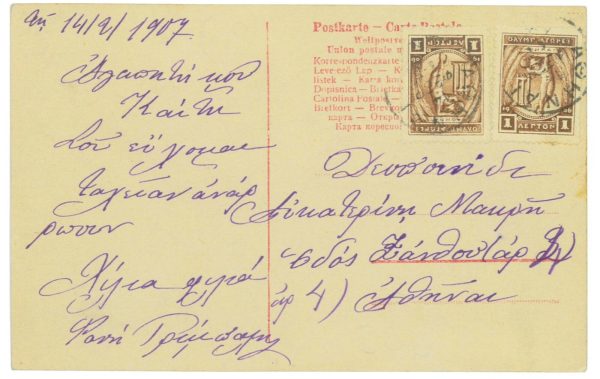 14/2/1907
Ἀγαπητή μου
Καίτη
Σοῦ εὔχομαι
ταχεῖαν ἀνάρ
ρωσιν
Χίλια φιλιά
Φανή
Postkarte – Carte Postale
Weltpostver
Union postale u
Korrespondenzkarte
Levelező Lap – K
listek – Karta kor
Dopisnica – Briefka
Cartolina Postale
Brefkort – Brevko
карта – Откры
Карта кореспо
ΟΛΥΜΠ. ΑΓΩΝΕΣ
1 ΛΕΠΤΟΝ 1
ΟΛΥΜΠ. ΑΓΩΝΕΣ
1 ΛΕΠΤΟΝ 1
Δεσποινίδα
Αἰκατερίνη Μακρῆ
ὁδός Ξάνθου (ἀρ
ἀρ 4) Ἀθῆναι